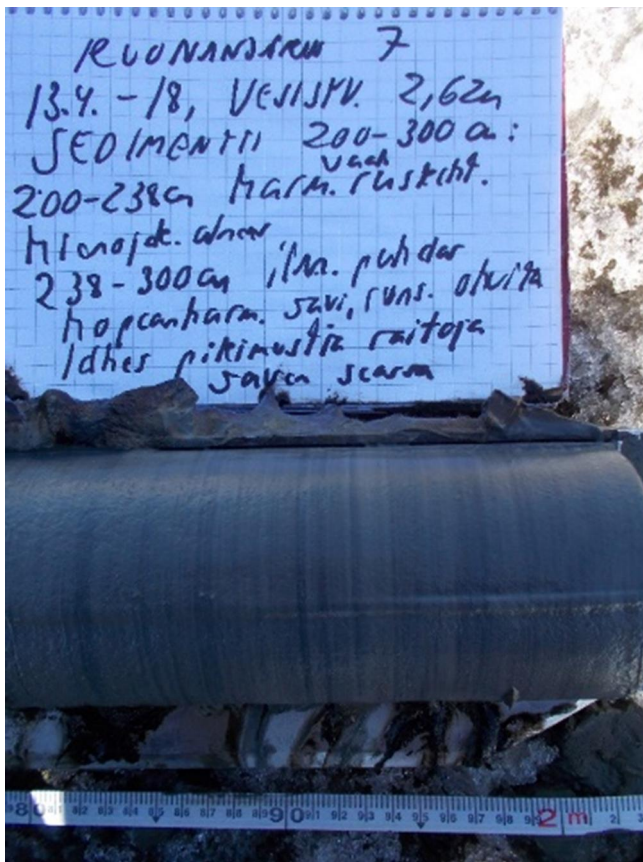 KUONANJÄRVI 7
13.4. -18, VESISYV. 2,62m
SEDIMENTTI 200-300 cm:
200-238cm harm. ruskeht.
hienojak. aines
238-300cm ilm. puhdas
hopeanharm. savi, runs. ohuita
lähes pikimustia raitoja
saven seassa
80 81 82 83 84 85 86 87 88 89 90 91 92 93 94 95 96 97 98 2m